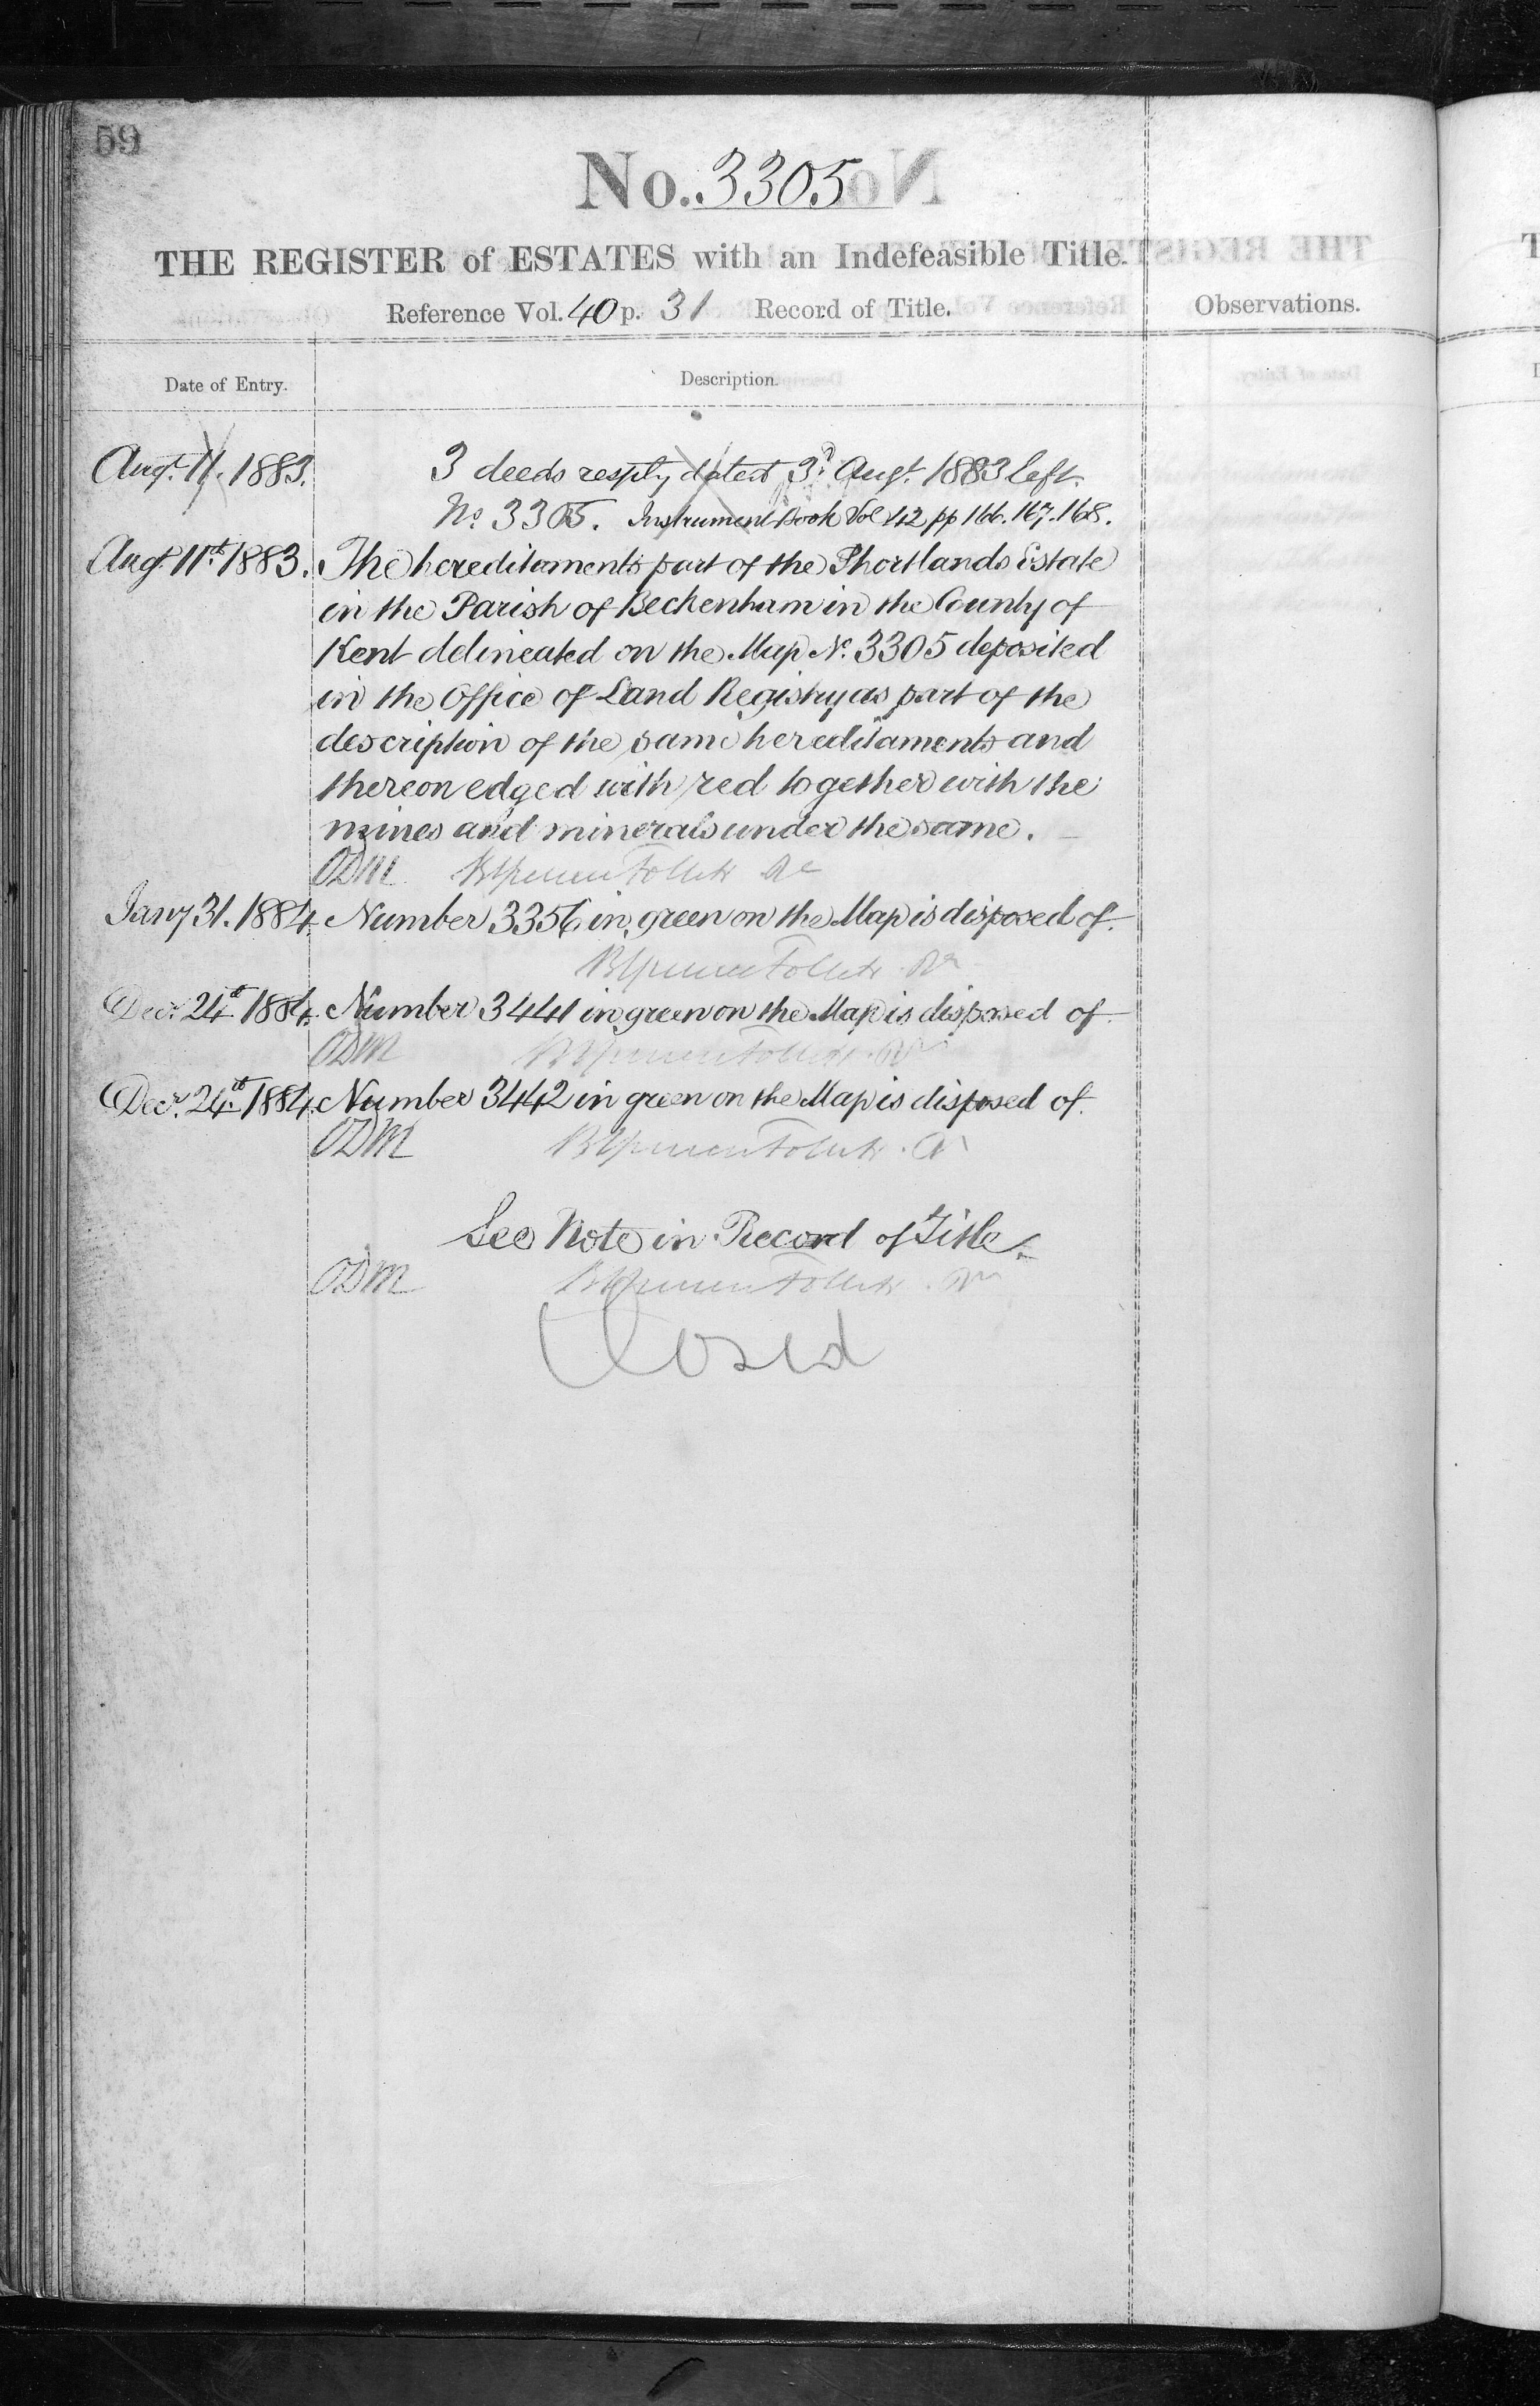 59
No. 3305
THE REGISTER of ESTATES with an Indefeasible Title.
Reference Vol. 40 p. 31 Record of Title.
Observations.
Date of Entry.
Description.
Augt. 11. 1883. 3 deeds resply dated 3rd Augt. 1883 left.
No 3305. Instrument Book Vol 42 pp 166. 167. 168.
Augt. 11th 1883. The hereditaments part of the Shortlands Estate
in the Parish of Beckenham in the County of
Kent delineated on the Map No. 3305 deposited
in the Office of Land Registry as part of the
description of the same hereditaments and
thereon edged with red together with the
mines and minerals under the same.
ODM
Jany 31. 1884. Number 3356 in green on the Map is disposed of.
Decr. 24th 1884. Number 3441 in green on the Map is disposed of.
ODM
Decr. 24th 1884. Number 3442 in green on the Map is disposed of.
ODM
See Note in Record of Title.
ODM
Closed